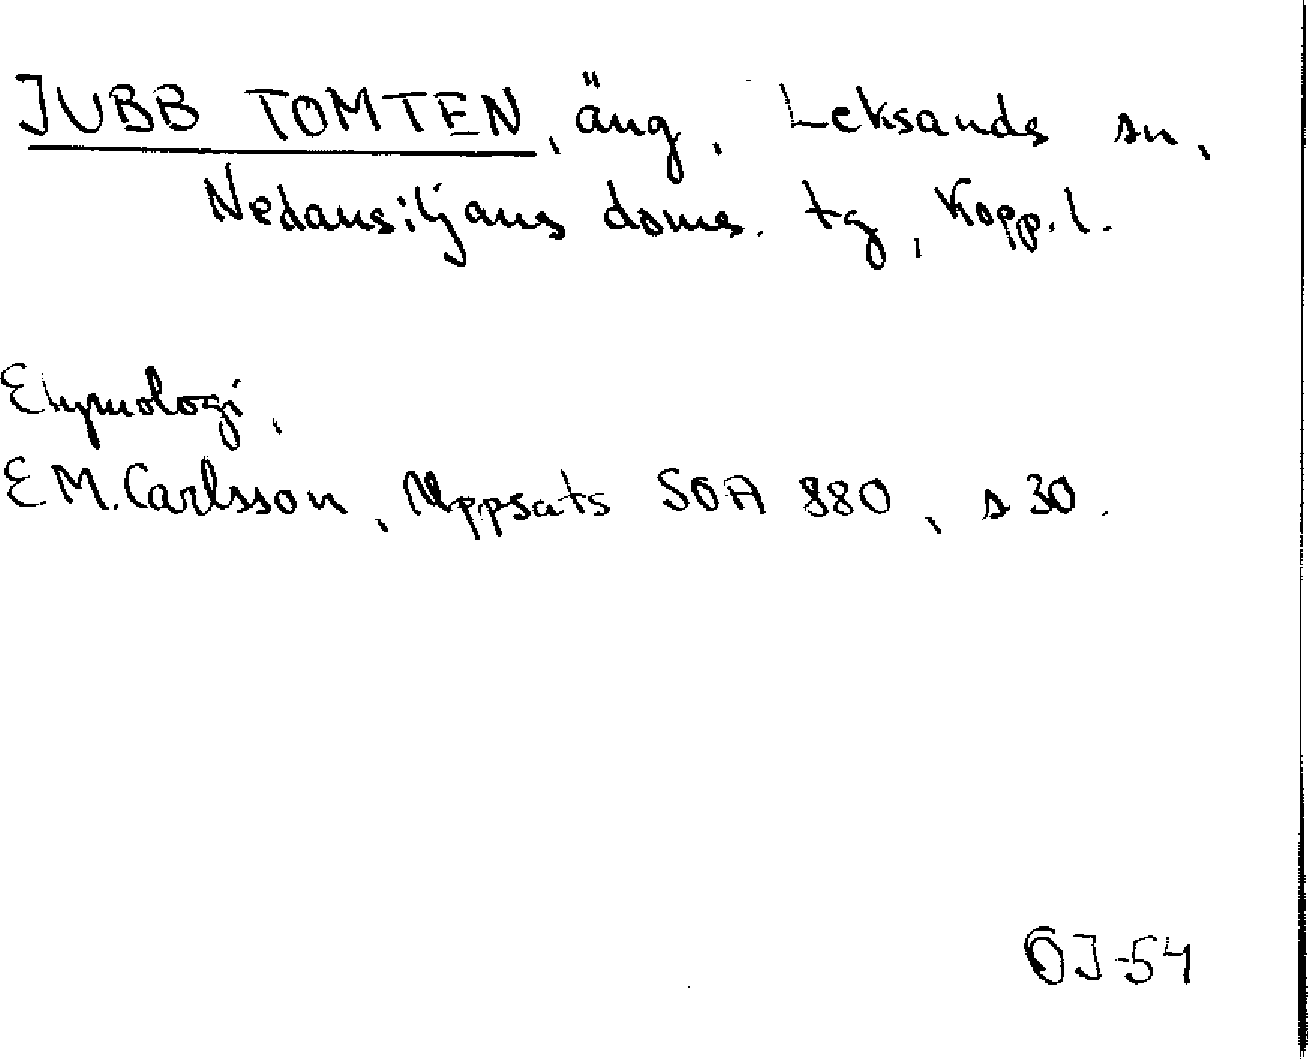 JUBB TOMTEN, äng, Leksands sn,
Nedansiljans doms. tg, Kopp. l.
Etymologi,
E M. Carlsson, Uppsats SOA 880, s 30.
ÖJ-54